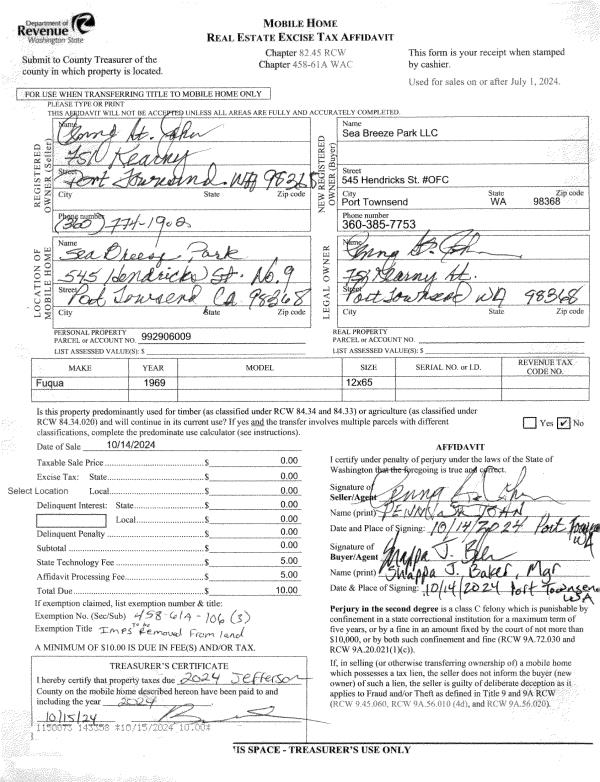 Department of
Revenue
Washington State
MOBILE HOME
REAL ESTATE EXCISE TAX AFFIDAVIT
Submit to County Treasurer of the
county in which property is located.
Chapter 82.45 RCW
Chapter 458-61A WAC
This form is your receipt when stamped
by cashier.
Used for sales on or after July 1, 2024.
FOR USE WHEN TRANSFERRING TITLE TO MOBILE HOME ONLY
PLEASE TYPE OR PRINT
THIS AFFIDAVIT WILL NOT BE ACCEPTED UNLESS ALL AREAS ARE FULLY AND ACCURATELY COMPLETED.
REGISTERED
OWNER (Seller)
Name
751 Kearny
Street
Port Townsend. WA 98368
City State Zip code
Phone number
(360) 774-1902
NEW REGISTERED
OWNER (Buyer)
Name
Sea Breeze Park LLC
Street
545 Hendricks St. #OFC
City State Zip code
Port Townsend WA 98368
Phone number
360-385-7753
LOCATION OF
MOBILE HOME
Name
Sea Breeze Park
545 Hendricks St. No. 9
Street
Port Townsend, CA 98368
City State Zip code
LEGAL OWNER
Name
751 Kearny St.
Street
Port Townsend WA 98368
City State Zip code
PERSONAL PROPERTY
PARCEL or ACCOUNT NO. 992906009
LIST ASSESSED VALUE(S): $
REAL PROPERTY
PARCEL or ACCOUNT NO.
LIST ASSESSED VALUE(S): $
MAKE YEAR MODEL SIZE SERIAL NO. or I.D. REVENUE TAX CODE NO.
Fuqua 1969 12x65
Is this property predominantly used for timber (as classified under RCW 84.34 and 84.33) or agriculture (as classified under
RCW 84.34.020) and will continue in its current use? If yes and the transfer involves multiple parcels with different
classifications, complete the predominate use calculator (see instructions).
Yes ✓ No
Date of Sale 10/14/2024
Taxable Sale Price $ 0.00
Excise Tax: State $ 0.00
Select Location Local $ 0.00
Delinquent Interest: State $ 0.00
Local $ 0.00
Delinquent Penalty $ 0.00
Subtotal $ 0.00
State Technology Fee $ 5.00
Affidavit Processing Fee $ 5.00
Total Due $ 10.00
If exemption claimed, list exemption number & title:
Exemption No. (Sec/Sub) 458-61A-106 (3)
Exemption Title Imps to be Removed From land
A MINIMUM OF $10.00 IS DUE IN FEE(S) AND/OR TAX.
TREASURER'S CERTIFICATE
I hereby certify that property taxes due 2024 Jefferson
County on the mobile home described hereon have been paid to and
including the year 2024
10/15/24
1150073 143358 *10/15/2024 10.00*
AFFIDAVIT
I certify under penalty of perjury under the laws of the State of
Washington that the foregoing is true and correct.
Signature of
Seller/Agent
Name (print) PENNY St. JOHN
Date and Place of Signing: 10/14/2024 Port Townsend WA
Signature of
Buyer/Agent
Name (print) Shappa J. Baker, Mgr
Date & Place of Signing: 10/14/2024 Port Townsend WA
Perjury in the second degree is a class C felony which is punishable by
confinement in a state correctional institution for a maximum term of
five years, or by a fine in an amount fixed by the court of not more than
$10,000, or by both such confinement and fine (RCW 9A.72.030 and
RCW 9A.20.021(1)(c)).
If, in selling (or otherwise transferring ownership of) a mobile home
which possesses a tax lien, the seller does not inform the buyer (new
owner) of such a lien, the seller is guilty of deliberate deception as it
applies to Fraud and/or Theft as defined in Title 9 and 9A RCW
(RCW 9.45.060, RCW 9A.56.010 (4d), and RCW 9A.56.020).
IS SPACE - TREASURER'S USE ONLY